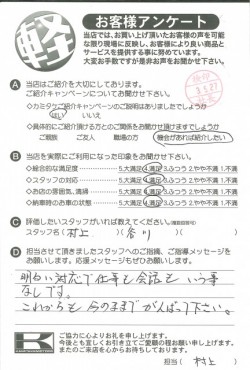 軽
お客様アンケート
当店では、お買い上げ頂いたお客様の声を可
能な限り現場に反映し、お客様により良い商品と
サービスを提供する事に努めております。
大変お手数ですが是非お声をお聞かせ下さい。
A 当店はご紹介を大切にしております。
ご紹介キャンペーンについてお聞かせ下さい。
◇カミタケご紹介キャンペーンのご説明はありましたでしょうか
はい いいえ
◇具体的にご紹介頂ける方とのご関係をお聞かせ頂けますでしょうか
ご親族 ご友人 職場の方 機会があれば紹介したい
B 当店を実際にご利用になった印象をお聞かせ下さい。
◇総合的な満足度 5.大満足 4.満足 3.ふつう 2.やや不満 1.不満
◇スタッフの対応 5.大満足 4.満足 3.ふつう 2.やや不満 1.不満
◇お店の雰囲気、清掃 5.大満足 4.満足 3.ふつう 2.やや不満 1.不満
◇納車時のお車の状態 5.大満足 4.満足 3.ふつう 2.やや不満 1.不満
C 評価したいスタッフがいれば教えてください。
スタッフ名( 村上 )( 谷川 )( )
D 担当させて頂きましたスタッフへのご指摘、ご指導メッセージを
お願いします。応援メッセージもぜひお願いします。
明るい対応で仕事も会話も いう事
なしです。
これからも 今のままで がんばって下さい。
K
ご協力に心よりお礼を申し上げます。
今後とも宜しくお引き立てご愛顧の程お願い申し上げます。
またのご来店を心からお待ちしております。
担当( 村上 )